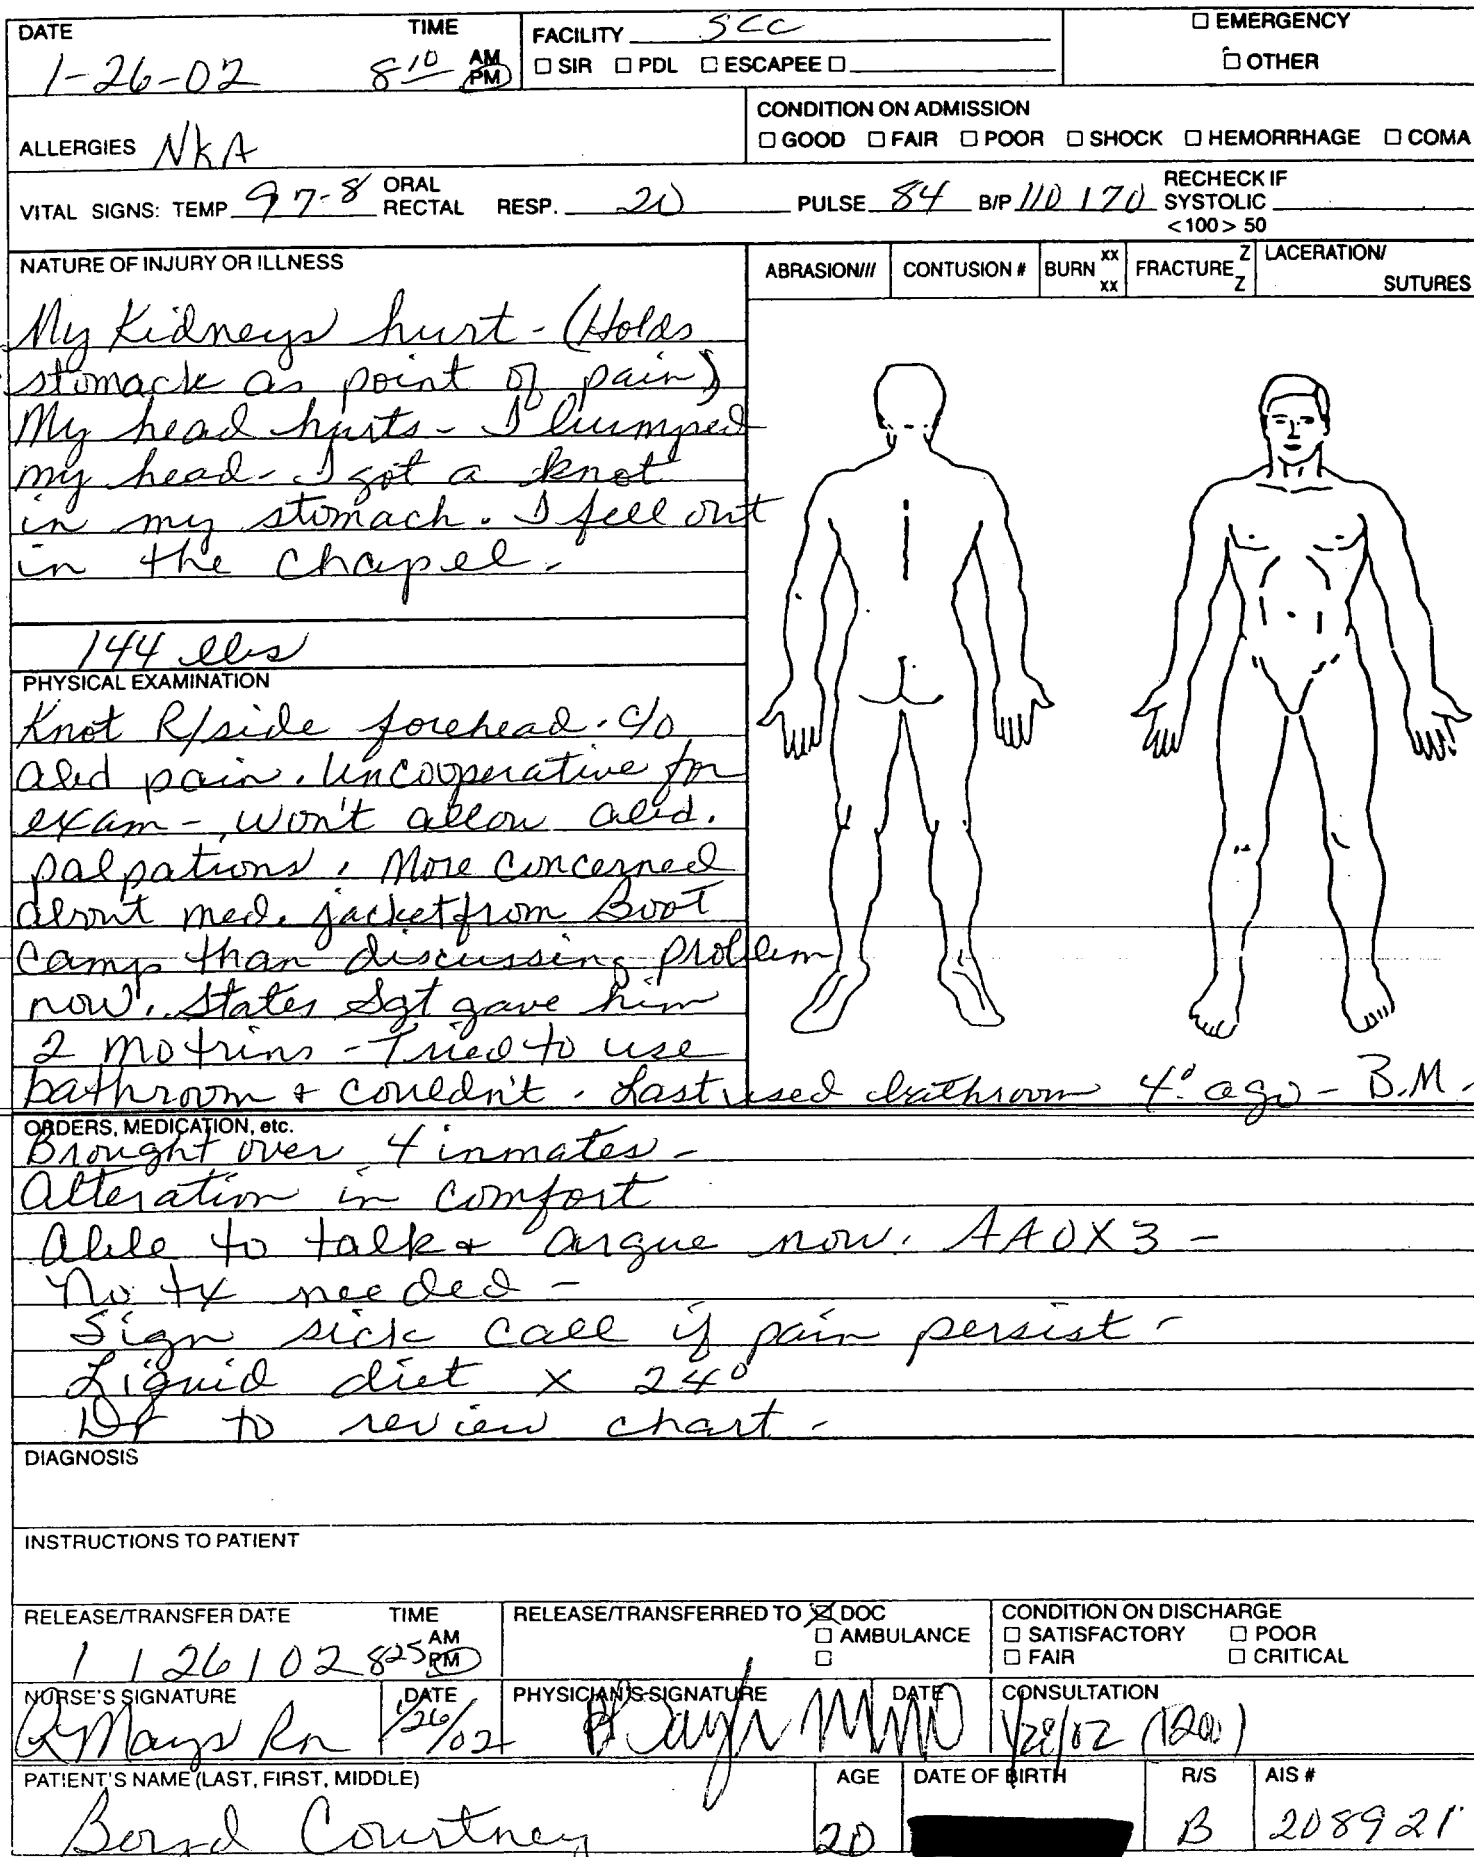 DATE TIME FACILITY SCC ☐ EMERGENCY
1-26-02 8 10 AM PM ☐ SIR ☐ PDL ☐ ESCAPEE ☐ ☐ OTHER
ALLERGIES NKA
CONDITION ON ADMISSION
☐ GOOD ☐ FAIR ☐ POOR ☐ SHOCK ☐ HEMORRHAGE ☐ COMA
VITAL SIGNS: TEMP 97-8 ORAL RECTAL RESP. 20 PULSE 84 B/P 110 / 70 RECHECK IF SYSTOLIC <100> 50
NATURE OF INJURY OR ILLNESS
ABRASION/// CONTUSION # BURN xx xx FRACTURE Z Z LACERATION/ SUTURES
My Kidneys hurt - (Holds
stomack as point of pain)
My head hurts - I bumped
my head - I got a knot
in my stomach. I fell out
in the chapel.
144 lbs
PHYSICAL EXAMINATION
Knot R/side forehead. c/o
abd pain. Uncooperative for
exam - won't allow abd.
palpations. More concerned
about med. jacket from Boot
Camp than discussing problem
now. States Sgt gave him
2 motrins - Tried to use
bathroom + couldn't. Last used bathroom 4° ago - B.M.
ORDERS, MEDICATION, etc.
Brought over 4 inmates -
Alteration in comfort
Able to talk + argue now. AAOX3 -
No tx needed -
Sign sick call if pain persist -
Liquid diet x 24°
Dr to review chart -
DIAGNOSIS
INSTRUCTIONS TO PATIENT
RELEASE/TRANSFER DATE TIME RELEASE/TRANSFERRED TO ☒ DOC CONDITION ON DISCHARGE
☐ AMBULANCE ☐ SATISFACTORY ☐ POOR
1 / 26 / 02 825 AM PM ☐ ☐ FAIR ☐ CRITICAL
NURSE'S SIGNATURE DATE PHYSICIAN'S SIGNATURE DATE CONSULTATION
Mays Rn 1/26/02 1/28/02
PATIENT'S NAME (LAST, FIRST, MIDDLE) AGE DATE OF BIRTH R/S AIS #
Courtney 20 B 208921